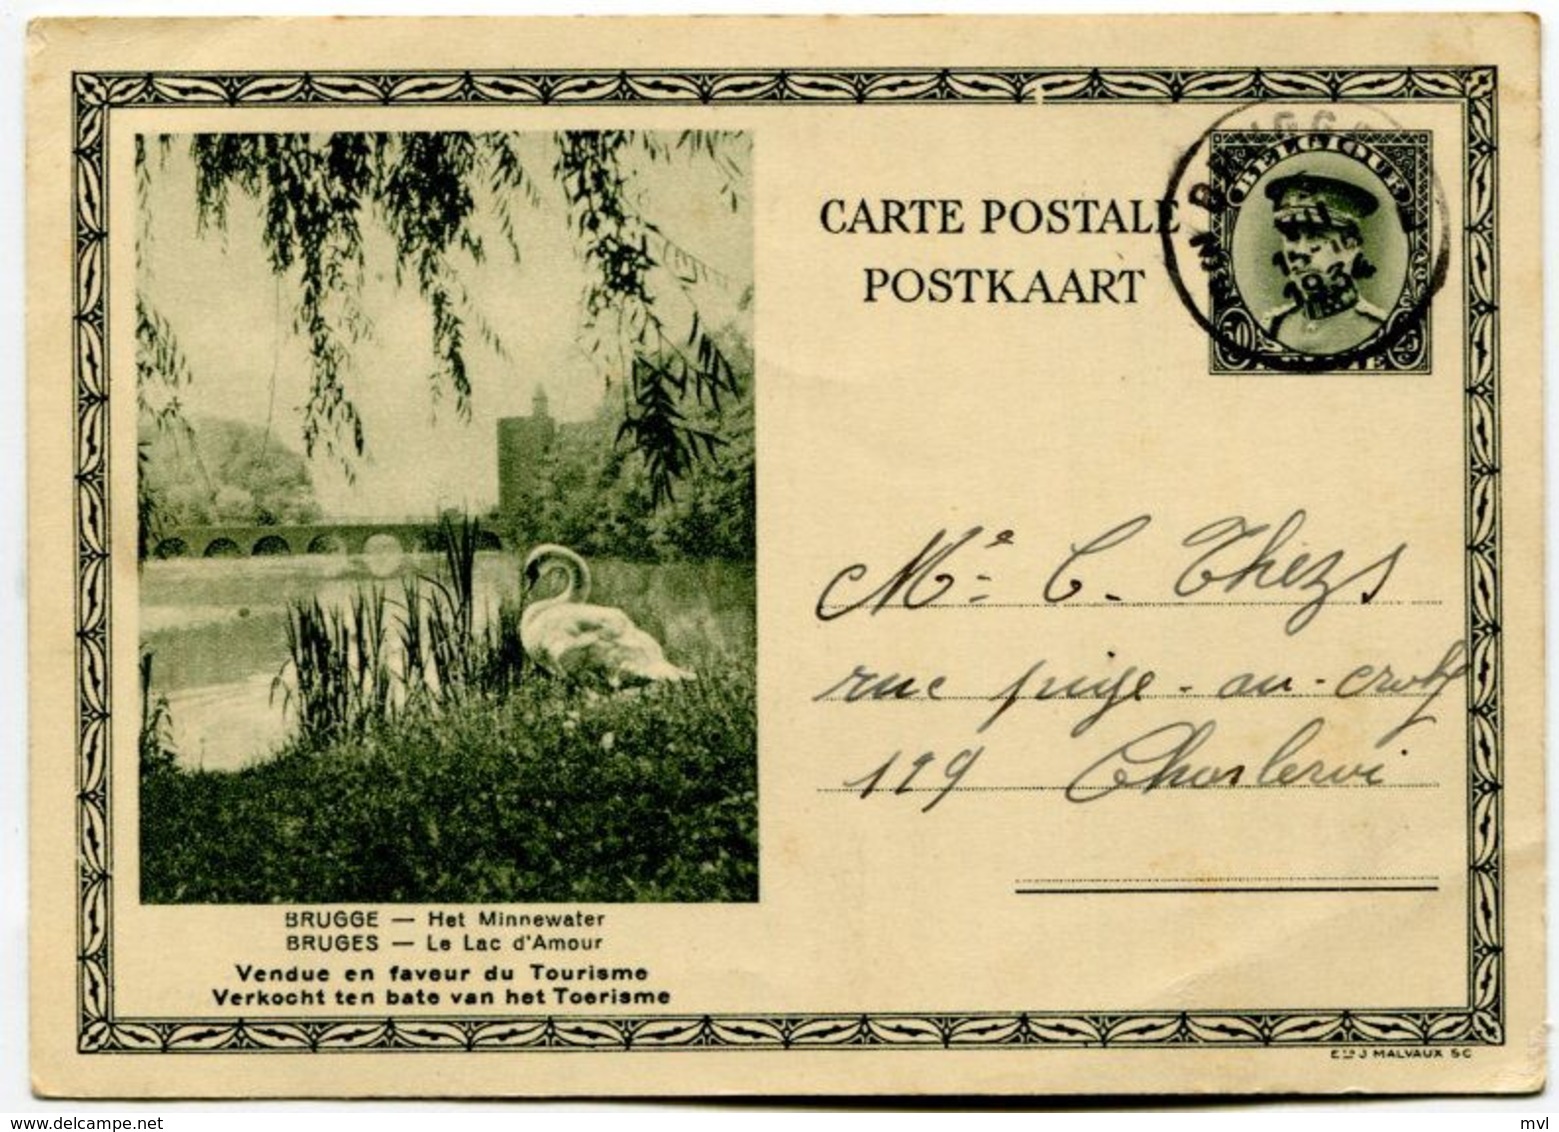 CARTE POSTALE
POSTKAART
BELGIQUE
1934
50
Me C. Thézs
rue
129 Charleroi
BRUGGE — Het Minnewater
BRUGES — Le Lac d'Amour
Vendue en faveur du Tourisme
Verkocht ten bate van het Toerisme
Ets J MALVAUX SC
delcampe.net
mvl